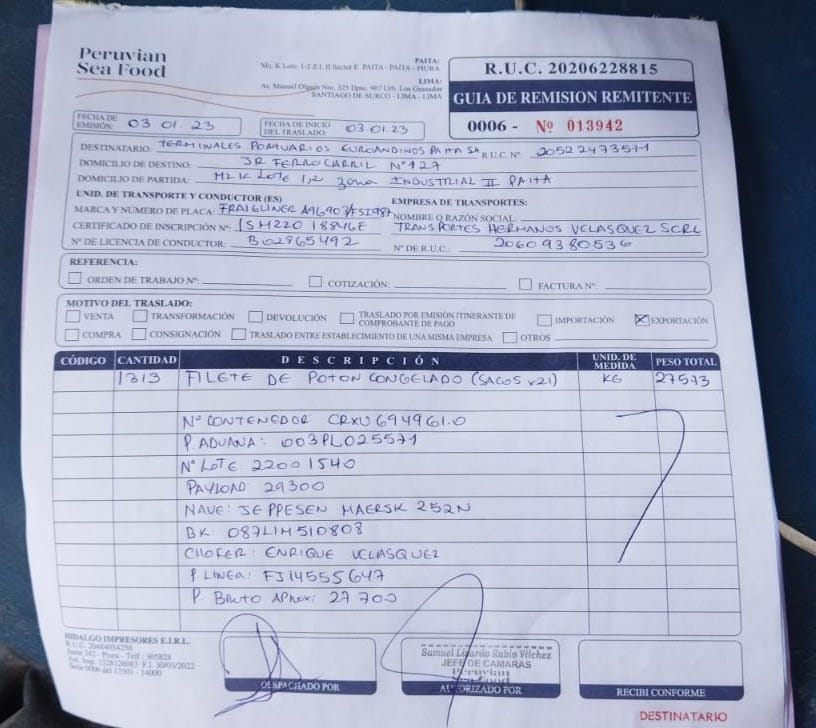 Peruvian
Sea Food
PAITA:
Mz. K Lote. 1/2 Z.I. II Sector E PAITA - PAITA - PIURA
LIMA:
Av. Manuel Olguin Nro. 325 Dpto. 907 Urb. Los Granados
SANTIAGO DE SURCO - LIMA - LIMA
R.U.C. 20206228815
GUIA DE REMISION REMITENTE
0006 - Nº 013942
FECHA DE EMISIÓN: 03 01.23
FECHA DE INICIO DEL TRASLADO: 03.01.23
DESTINATARIO: TERMINALES PORTUARIOS EUROANDINOS PAITA SA R.U.C. Nº 20522473571
DOMICILIO DE DESTINO: JR FERROCARRIL Nº127
DOMICILIO DE PARTIDA: MZ K LOTE 1,2 ZONA INDUSTRIAL II PAITA
UNID. DE TRANSPORTE Y CONDUCTOR (ES) EMPRESA DE TRANSPORTES:
MARCA Y NÚMERO DE PLACA: FRAIGLINER A9G903/FSI987 NOMBRE O RAZÓN SOCIAL:
CERTIFICADO DE INSCRIPCIÓN Nº: 15M220 18846E TRANSPORTES HERMANOS VELASQUEZ SCRL
Nº DE LICENCIA DE CONDUCTOR: B02865492 Nº DE R.U.C.: 20609380536
REFERENCIA:
ORDEN DE TRABAJO Nº: COTIZACIÓN: FACTURA Nº:
MOTIVO DEL TRASLADO:
VENTA TRANSFORMACIÓN DEVOLUCIÓN TRASLADO POR EMISIÓN ITINERANTE DE COMPROBANTE DE PAGO IMPORTACIÓN EXPORTACIÓN
COMPRA CONSIGNACIÓN TRASLADO ENTRE ESTABLECIMIENTO DE UNA MISMA EMPRESA OTROS
CÓDIGO CANTIDAD DESCRIPCIÓN UNID. DE MEDIDA PESO TOTAL
1313 FILETE DE POTON CONGELADO (SACOS x21) KG 27573
Nº CONTENEDOR CRXU 694961.0
P. ADUANA: 003PL025571
Nº LOTE 22001540
PAYLOAD 29300
NAVE: JEPPESEN MAERSK 252N
BK 087LIM510808
CHOFER: ENRIQUE VELASQUEZ
P. LINEA: FJ14555647
P. BRUTO APROX: 27 700
HIDALGO IMPRESORES E.I.R.L.
R.U.C. 20484034258
Junin 342 - Piura - Telf.: 305828
Aut. Imp. 1328126083 F.I. 30/03/2022
Serie 0006 del 13501 - 14000
DESPACHADO POR
Samuel Lizardo Rubio Vilchez
JEFE DE CAMARAS
Peruvian
AUTORIZADO POR
RECIBI CONFORME
DESTINATARIO